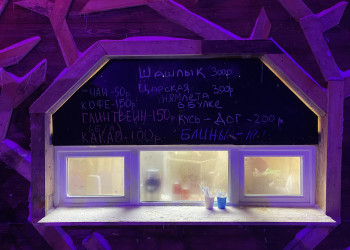 ШАШЛЫК 300р.
ЦАРСКАЯ 300р
КОТЛЕТА
В БУЛКЕ
ЧАЙ-50р.
КОФЕ-150р
ГЛИНТВЕЙН-150р
КАКАО-100р.
ХУСЬ-ДОГ-200р
БЛИНЫ-